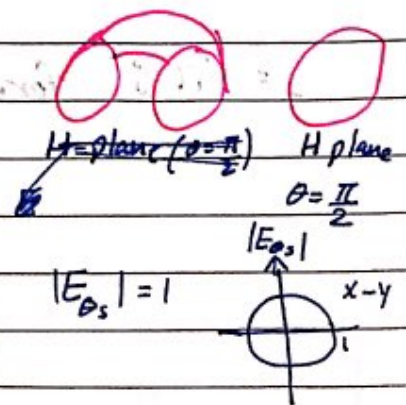 H-plane (θ=π/2) H plane
θ = π/2
|Eθs|
|Eθs| = 1 x-y
1